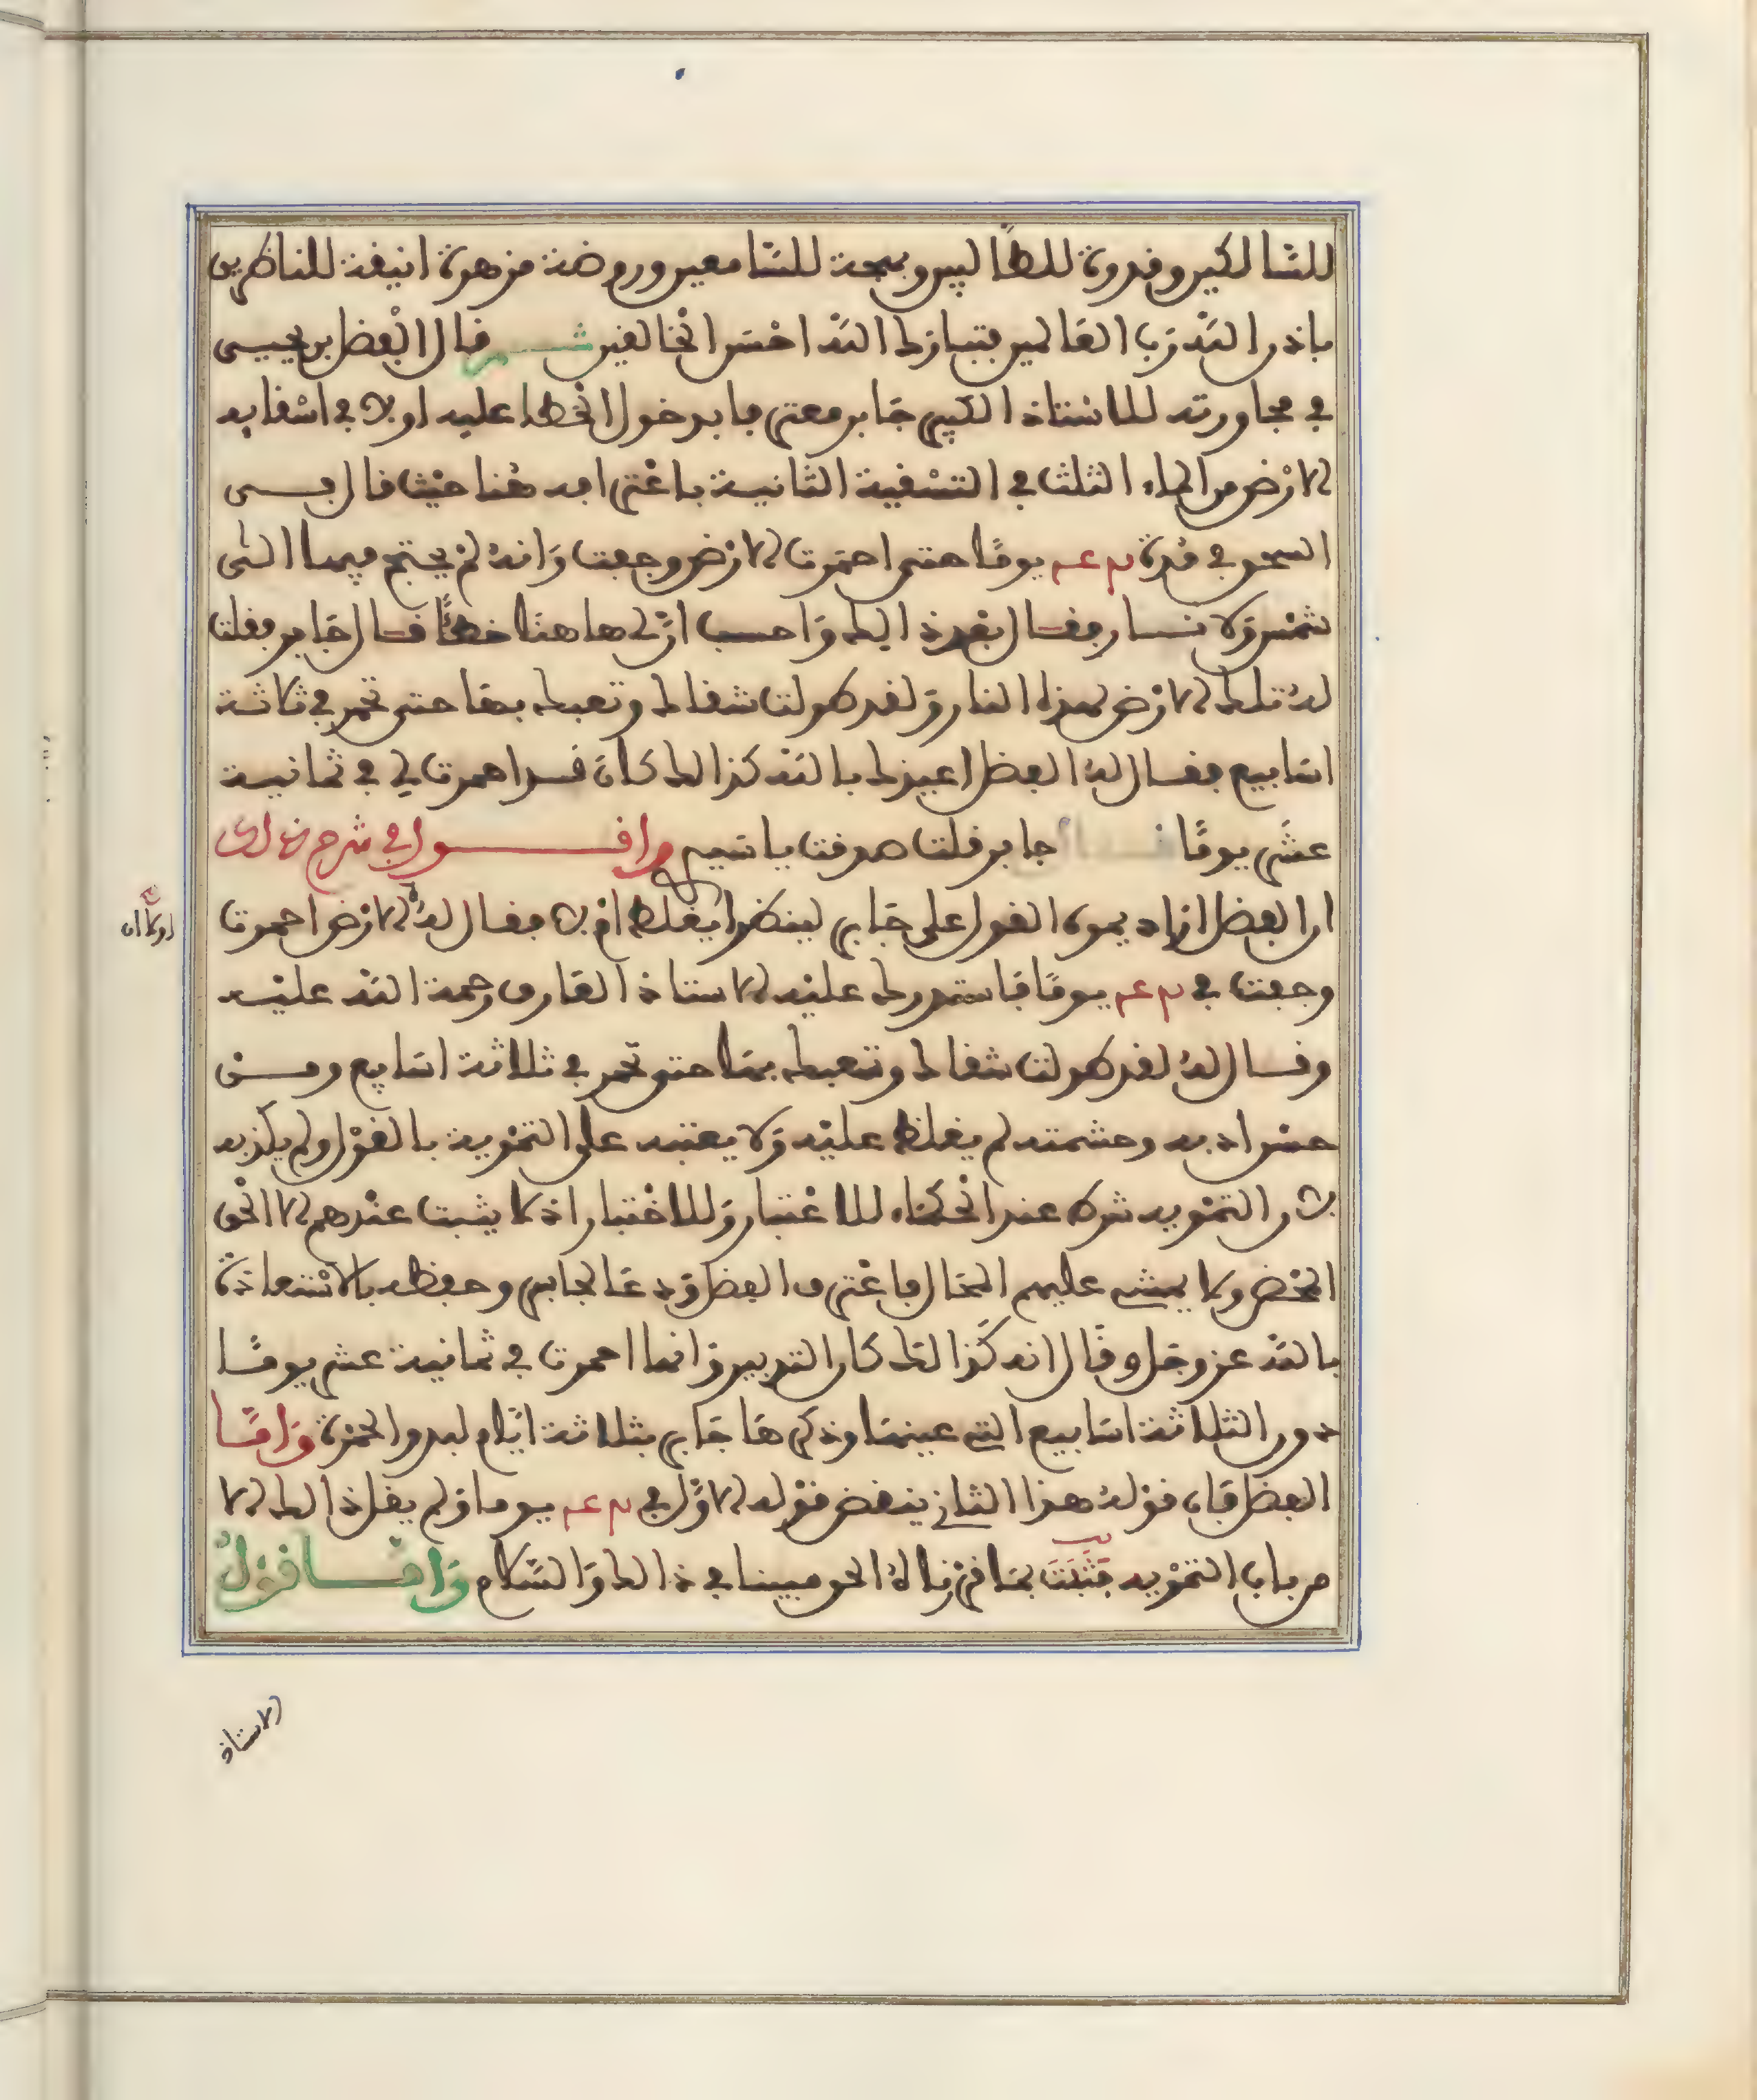 للسالكين وقدوة للطالبين وبهجة للسامعين وروضة مزهرة انيقة للناظرين
باذن الله رب العالمين فتبارك الله احسن الخالقين قال الفضل بن يحيى
في مجاورته للاستاذ الكبير جابر معترفا بدخول الخطا عليه اولا في اسقايه
الارض من الماء الثلث في التسقية الثانية باعترافه هنا حيث قال
السحق في مدة يوما حتى احمرت الارض وجفت وانه لم يحتج فيها الى
شمس ولا نار فقال بعد ذالك واحسب ان لي هاهنا خطئا قال جابر فقلت
له تلك الارض لهذا النار ولقد طولت شقاك وتعبك بها حتى تحمر في ثلاثة
اسابيع فقال له الفضل اعيذك بالله كذالك كان قد احمرت لي في ثمانية
عشر يوما جابر قلت صدقت يا سيد واقول في شرح ذالك
ان الفضل اراد يموه القول على جابر لينظر ايغلط ام لا فقال له الارض احمرت
وجفت في يوما فاستدرك عليه الاستاذ العارف رحمة الله عليه
وقال له لقد طولت شقاك وتعبك بها حتى تحمر في ثلاثة اسابيع ومن
حسن ادبه وحشمته لم يغلظ عليه ولا يعتبه على التمويه بالقول ولم يكذبه
لان التمويه شرط عند الحكماء للاعتبار وللاختبار اذ لا يثبت عندهم الا الحق
المحض ولا يمشي عليهم المحال فاعترف الفضل ودعا لجابر وحفظه بالاستعاذة
بالله عز وجل وقال انه كذالك كان التدبير وانما احمرت في ثمانية عشر يوما
دون الثلاثة اسابيع التي عينها وذكرها جابر بثلاثة ايام لبدو الحمرة واما
الفضل فان قوله هذا الثاني ينقض قوله الاول في يوما ولم يقل ذالك الا
من باب التمويه فتبثت بما قررناه لك الحق مبينا في ذالك والسلام واما قول
الاستاذ